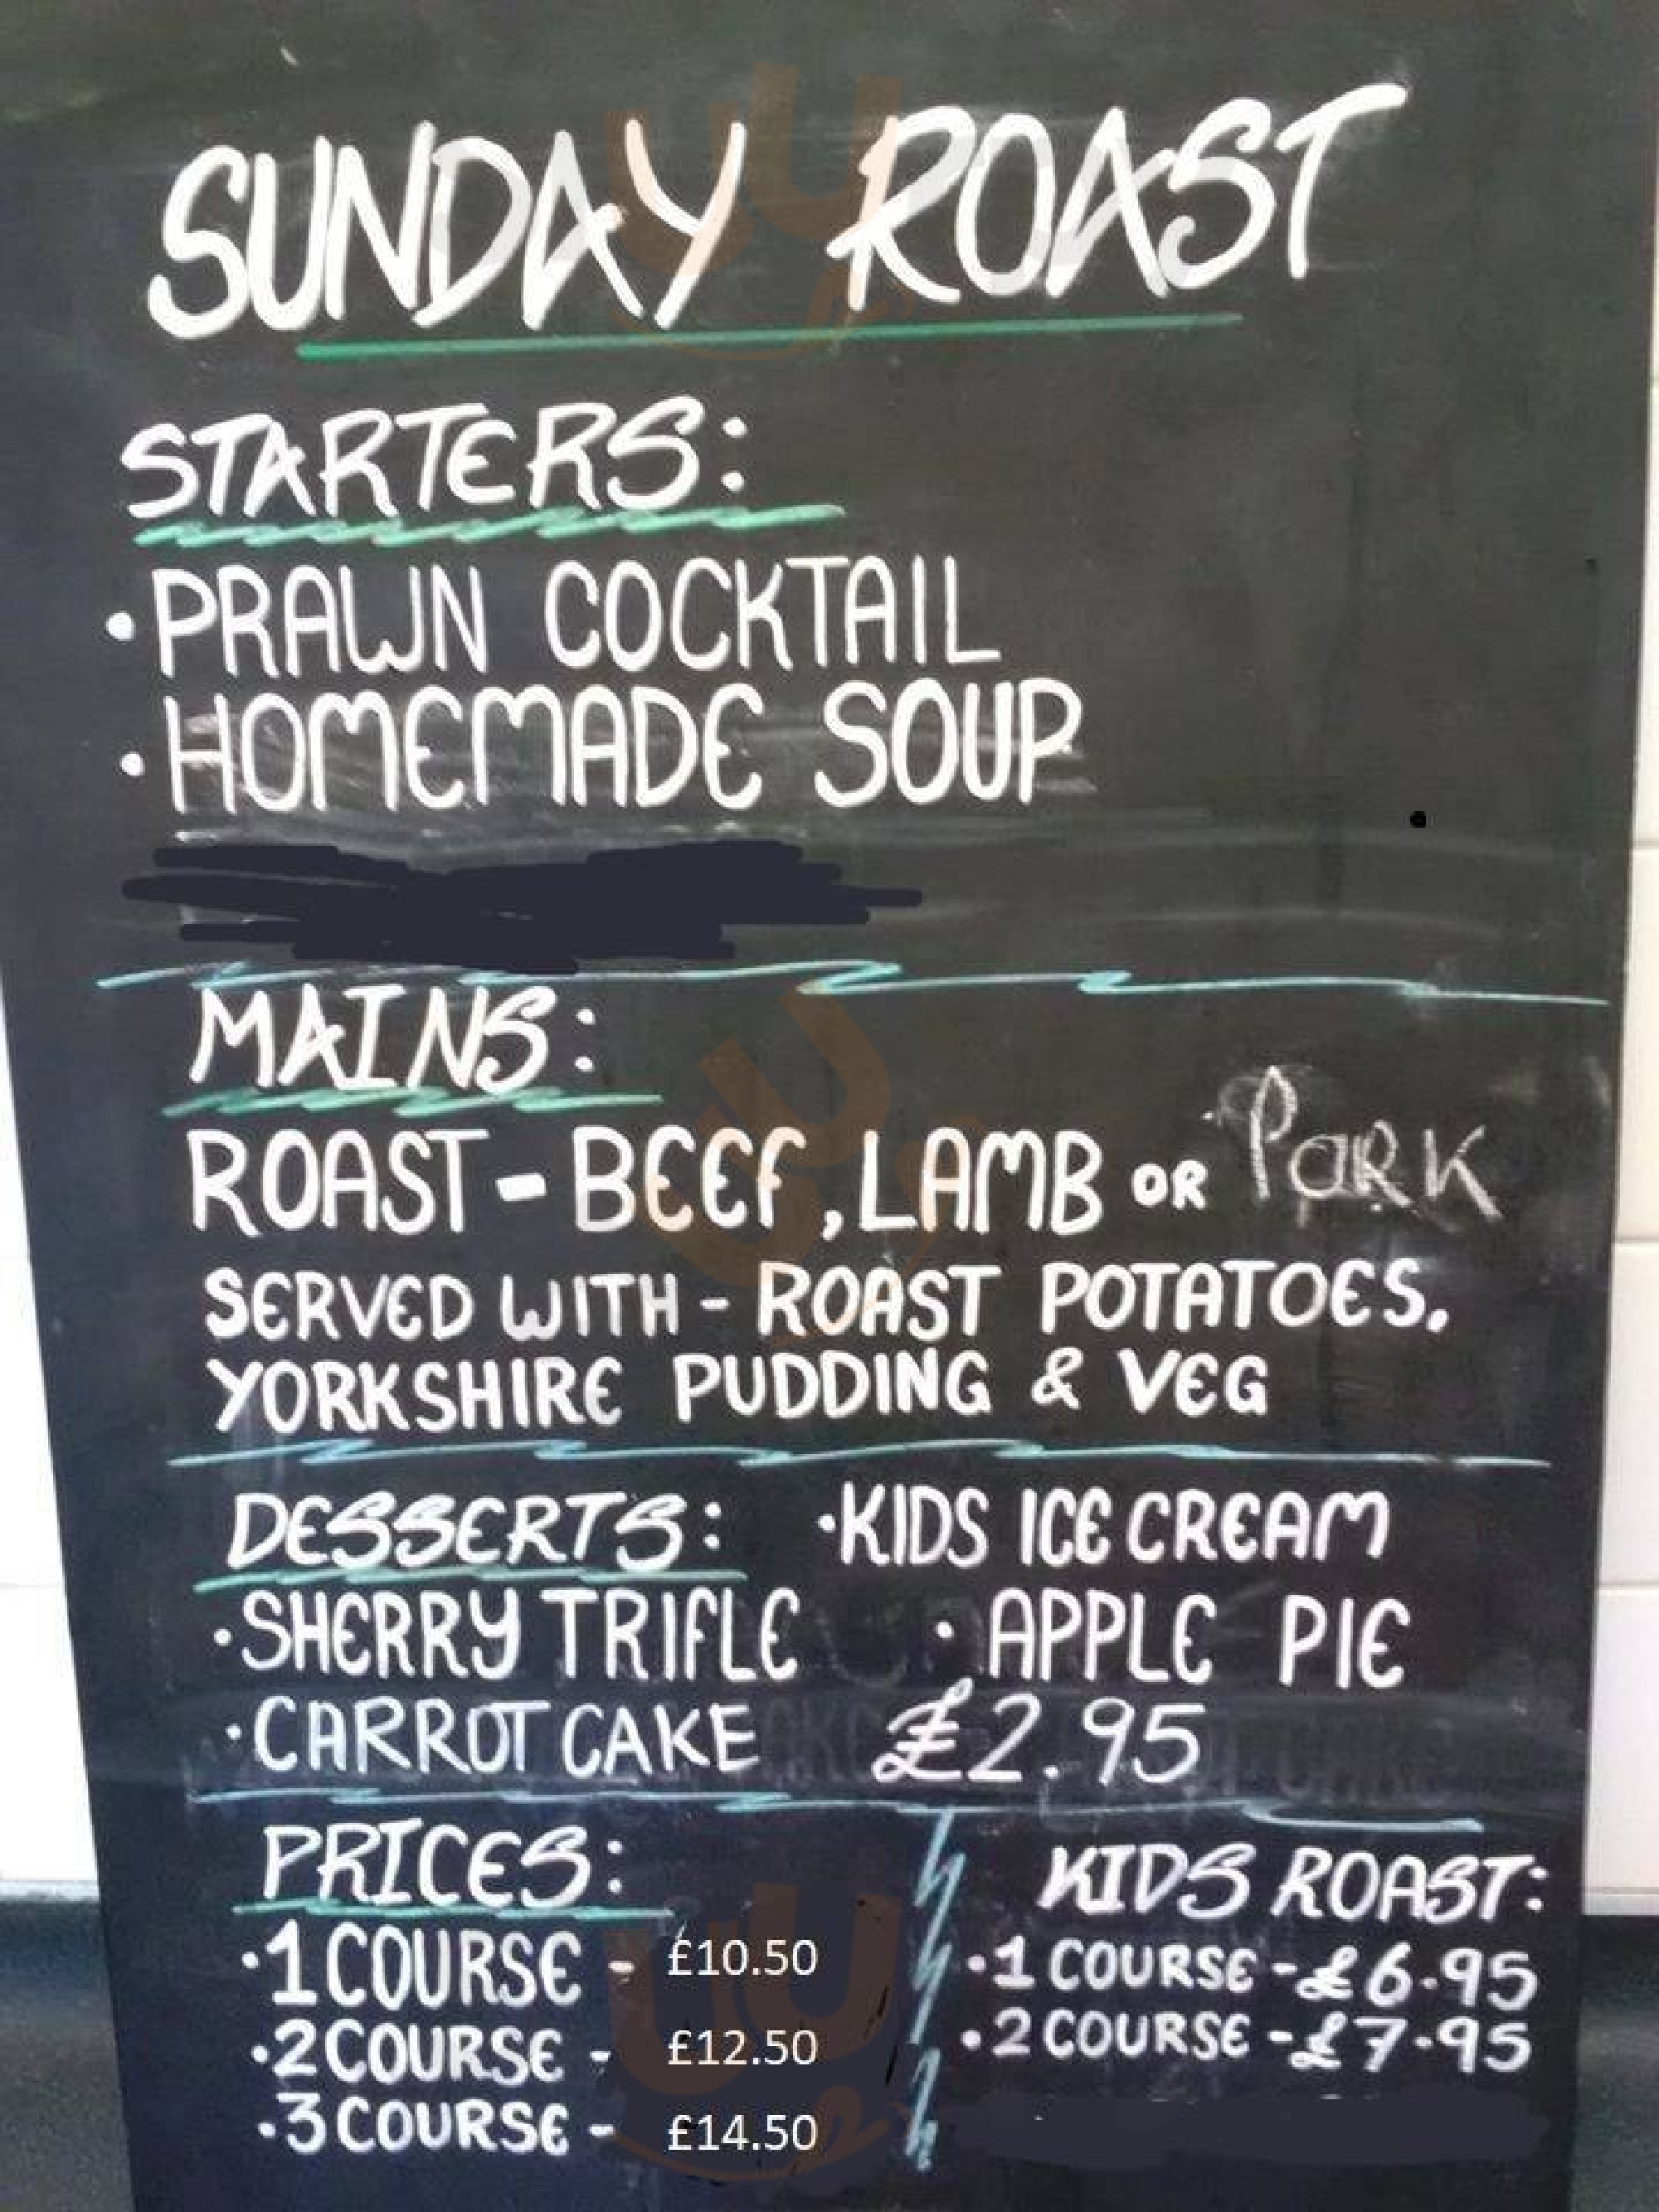 SUNDAY ROAST
STARTERS:
• PRAWN COCKTAIL
• HOMEMADE SOUP
MAINS:
ROAST - BEEF, LAMB OR PARK
SERVED WITH - ROAST POTATOES,
YORKSHIRE PUDDING & VEG
DESSERTS: • KIDS ICE CREAM
• SHERRY TRIFLE • APPLE PIE
• CARROT CAKE £2.95
PRICES:
• 1 COURSE - £10.50
• 2 COURSE - £12.50
• 3 COURSE - £14.50
KIDS ROAST:
• 1 COURSE - £6.95
• 2 COURSE - £7.95